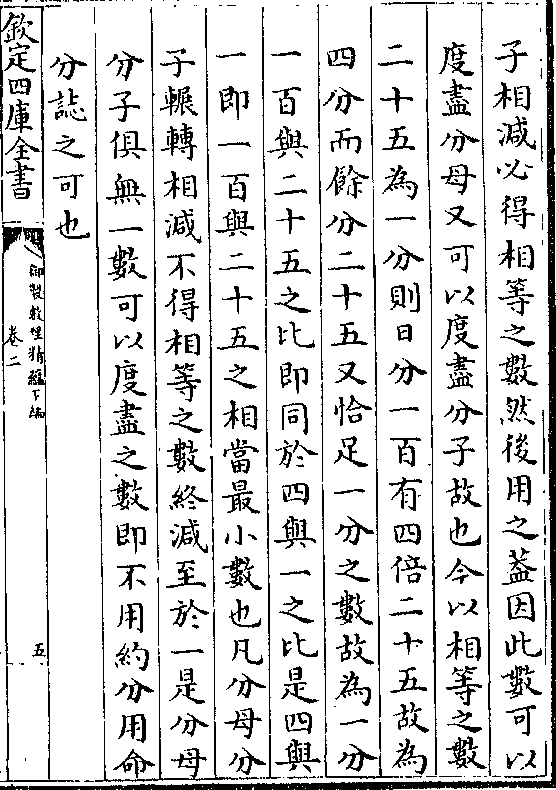 子相減必得相等之數然後用之葢因此數可以
度盡分母又可以度盡分子故也今以相等之數
二十五為一分則日分一百有四倍二十五故為
四分而餘分二十五又恰足一分之數故為一分
一百與二十五之比即同於四與一之比是四與
一即一百與二十五之相當最小數也凡分母分
子輾轉相減不得相等之數終減至於一是分母
分子俱無一數可以度盡之數即不用約分用命
分誌之可也
欽定四庫全書
御製數理精蘊下編
卷二
五